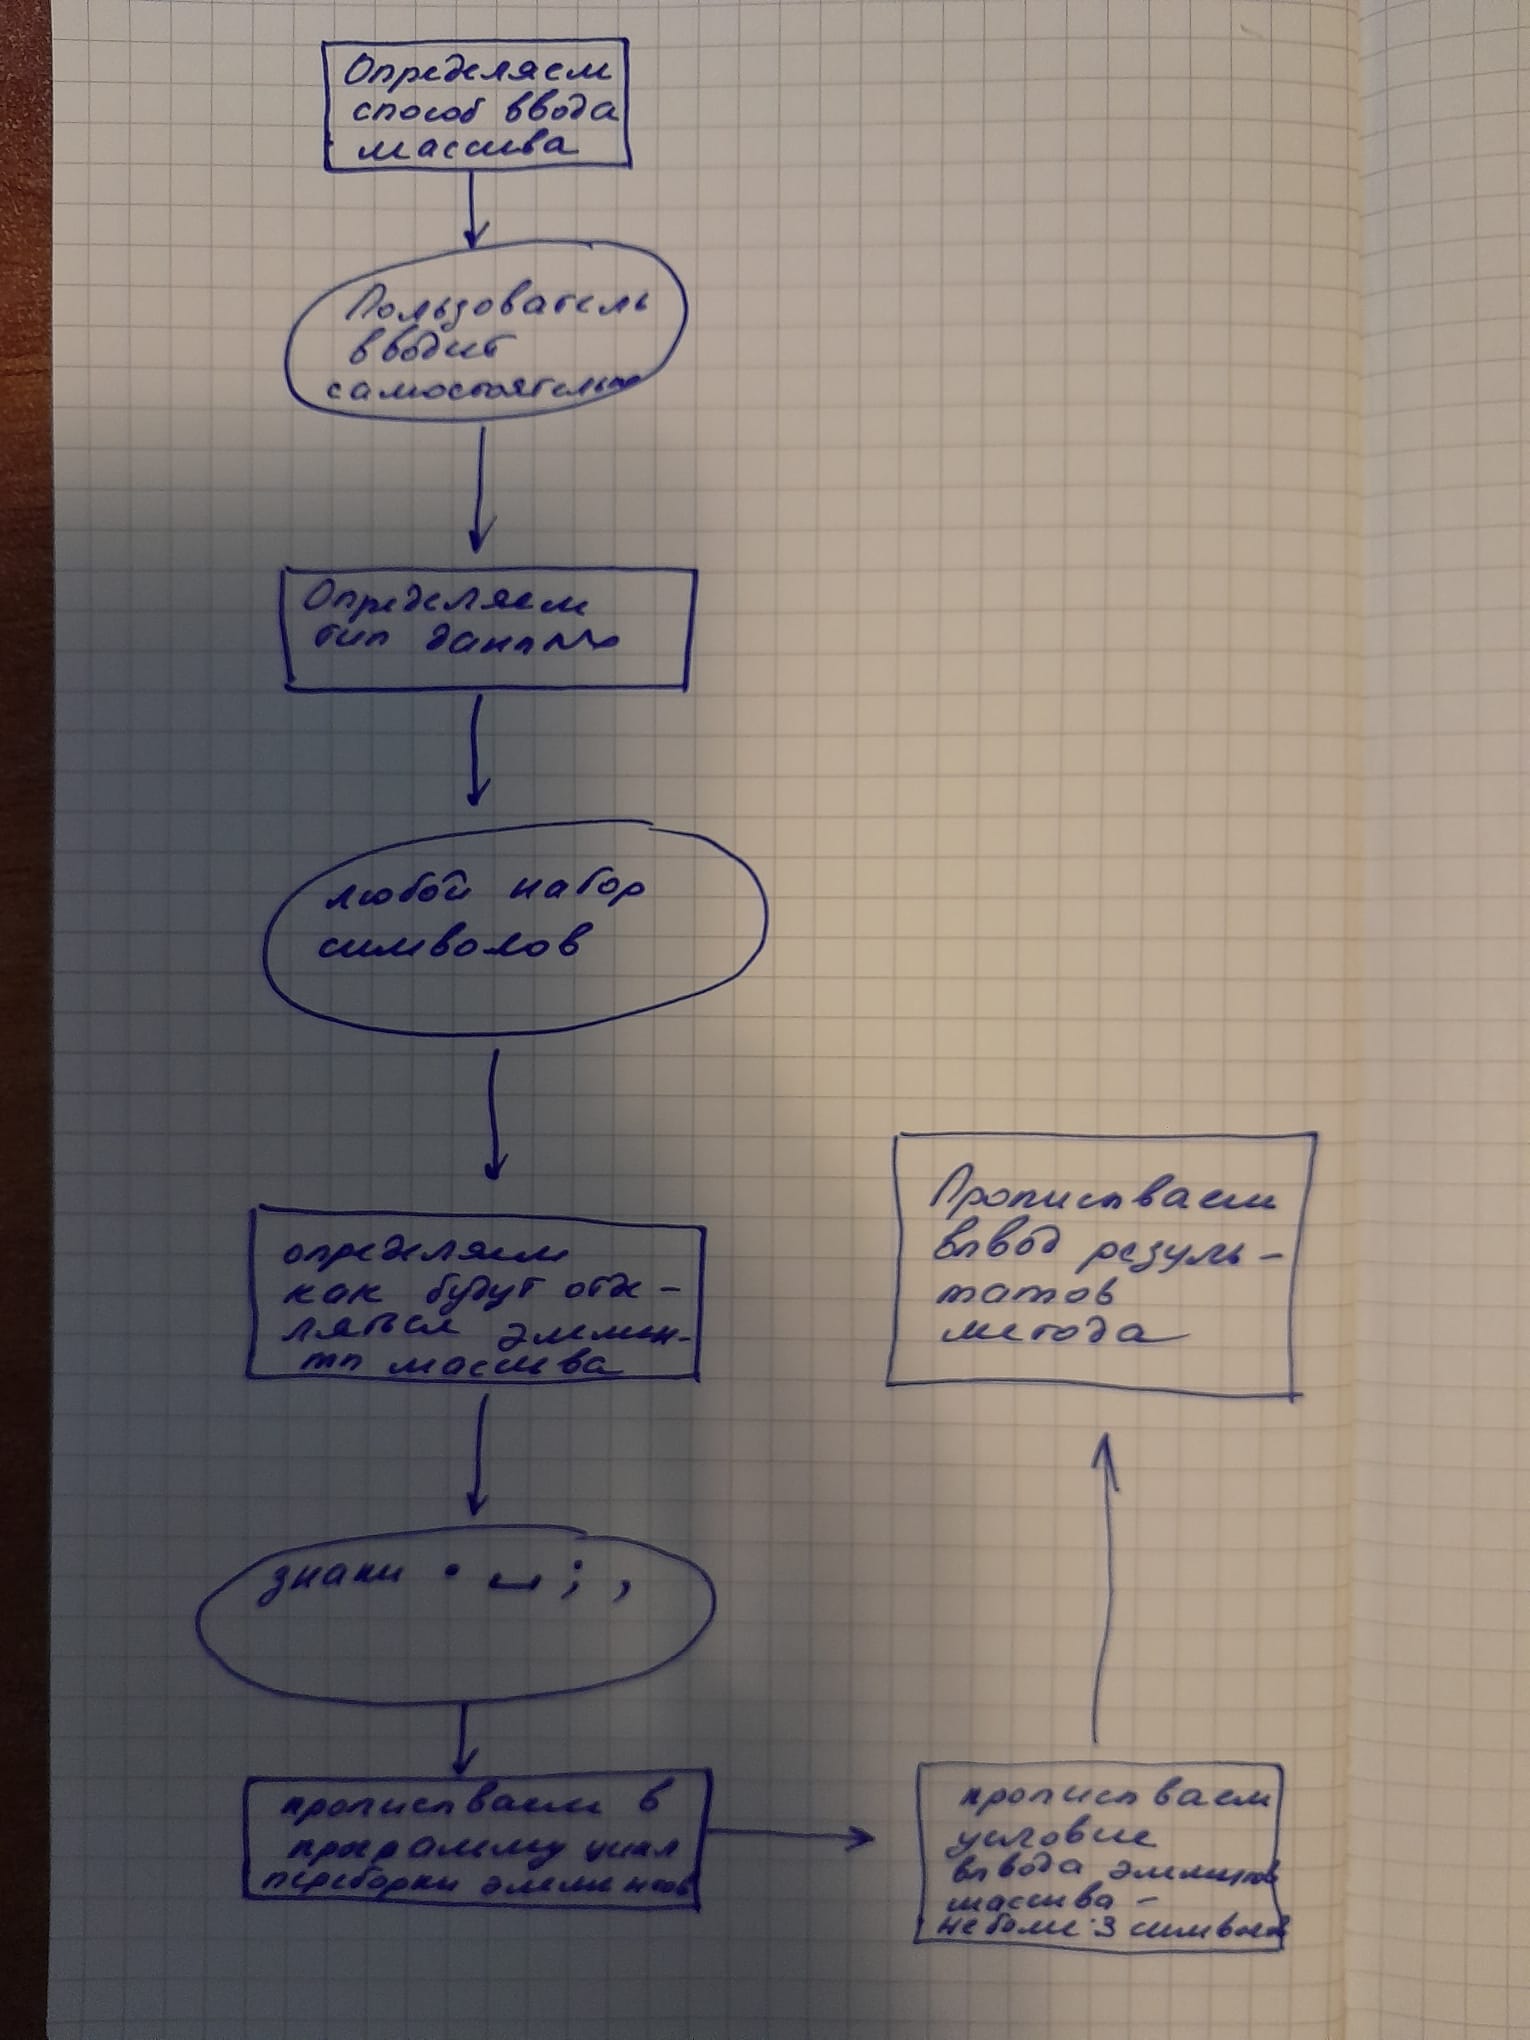 Определяем
способ ввода
массива
Пользователь
вводит
самостоятельно
Определяем
тип данных
любой набор
символов
определяем
как будут отде-
ляться элемен-
ты массива
знаки • ⎵ ; ,
прописываем в
программу цикл
переборки элементов
прописываем
условие
вывода элементов
массива –
не более 3 символов
Прописываем
вывод резуль-
татов
метода